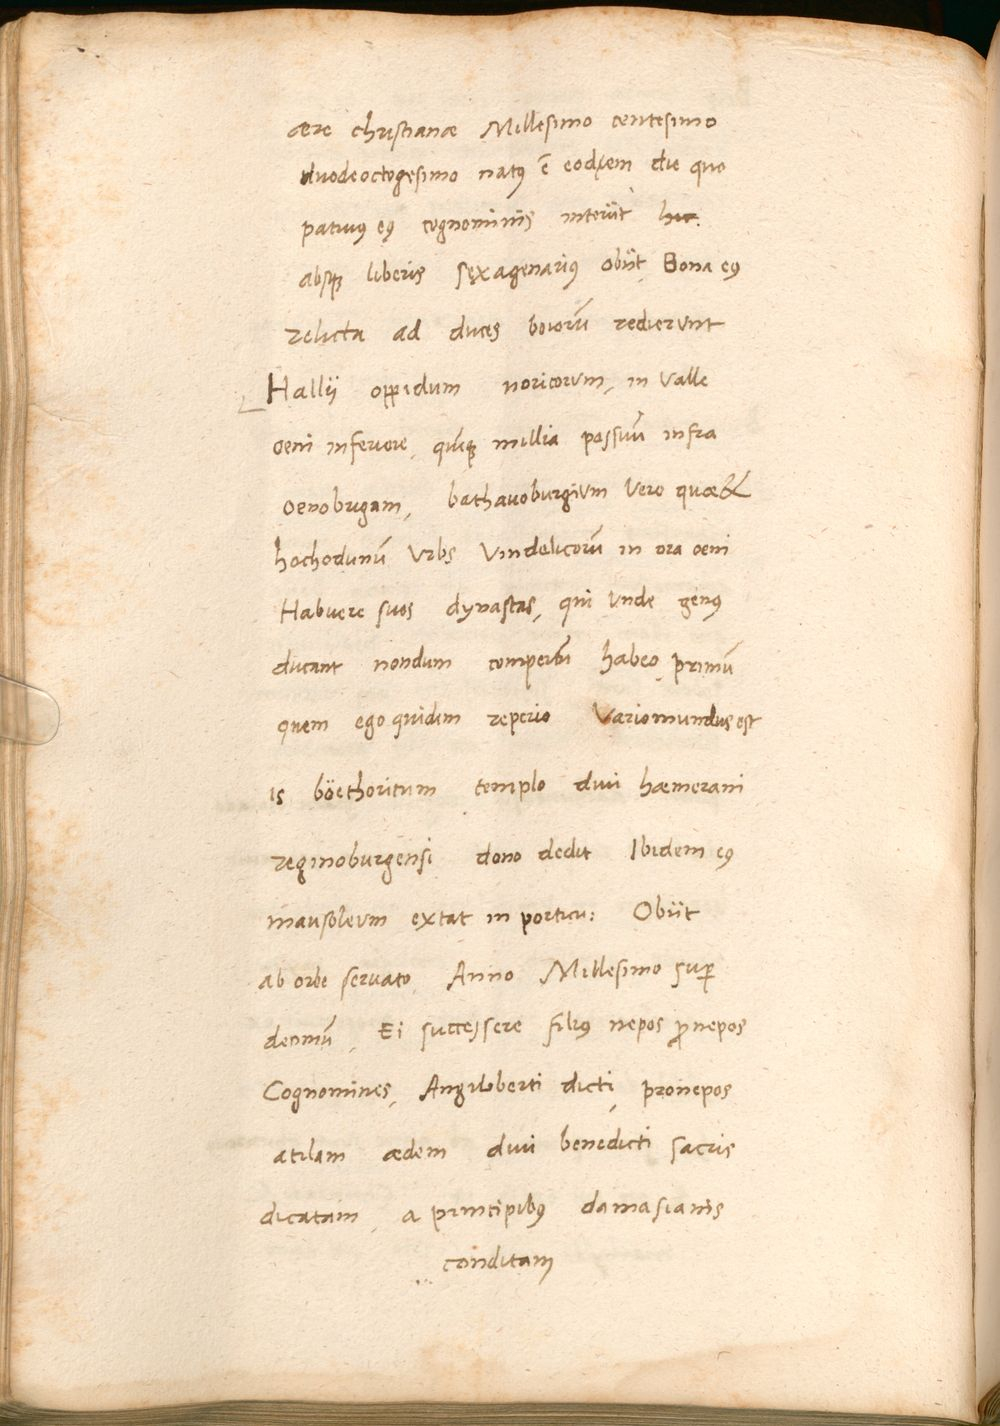 aere christianæ Millesimo centesimo
duodeoctogesimo natꝰ ē eodem die quo
patruꝰ eꝰ cognominis interiit hic
absqꝫ liberis sexagenariꝰ obiit Bona eꝰ
relicta ad duces boiorū redierunt
Hallii oppidum noricorum, in Valle
oeni inferiore, quīqꝫ millia passuū infra
oenobrigam, bathavoburgium Vero quæ &
hochodunū Vrbs Vindelicorū in ora oeni
Habuere suos dynastas, qui Vnde genꝰ
ducant nondum compertū habeo, primū
quem ego quidem reperio Variomundus est
is böethoritum templo diui hæmerani
reginoburgensi dono dedit Ibidem eꝰ
mausoleum extat in porticu: Obiit
ab orbe seruato, Anno Millesimo suꝑ
decimū, Ei successere filiꝰ nepos ꝓnepos
Cognomines, Angiloberti dicti, pronepos
atilam ædem diui benedicti sacris
dicatam, a principibꝰ damasianis
conditam